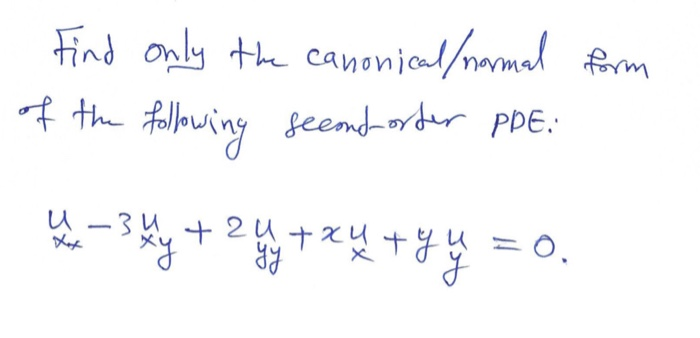 Find only the canonical/normal form
of the following second-order PDE:
u_xx - 3u_xy + 2u_yy + xu_x + yu_y = 0.